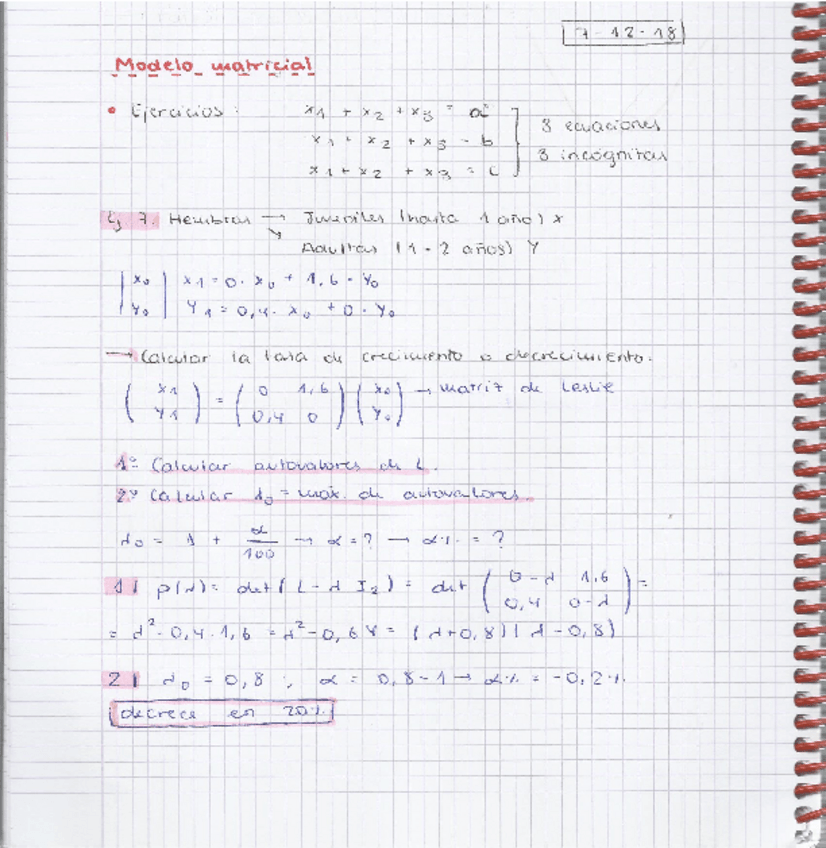 7-12-18
Modelo matricial
• Ejercicios: x1 + x2 + x3 = a
x1 + x2 + x3 = b
x1 + x2 + x3 = c
3 ecuaciones
3 incógnitas
Ej 7. Hembras → Juveniles (hasta 1 año) x
↘ Adultas (1-2 años) Y
|x0| x1 = 0 · x0 + 1,6 · Y0
|Y0| Y1 = 0,4 · x0 + 0 · Y0
→ Calcular la tasa de crecimiento o decrecimiento.
(x1) = (0 1,6) (x0) → matriz de Leslie
(Y1) (0,4 0) (Y0)
1º Calcular autovalores de L.
2º Calcular λ0 = máx. de autovalores.
λ0 = 1 + α/100 → α = ? → α% = ?
1) p(λ) = det (L - λ I2) = det (0-λ 1,6) =
(0,4 0-λ)
= λ² - 0,4 · 1,6 = λ² - 0,64 = (λ+0,8)(λ-0,8)
2) λ0 = 0,8 ; α = 0,8-1 → α% = -0,2%
decrece en 20%